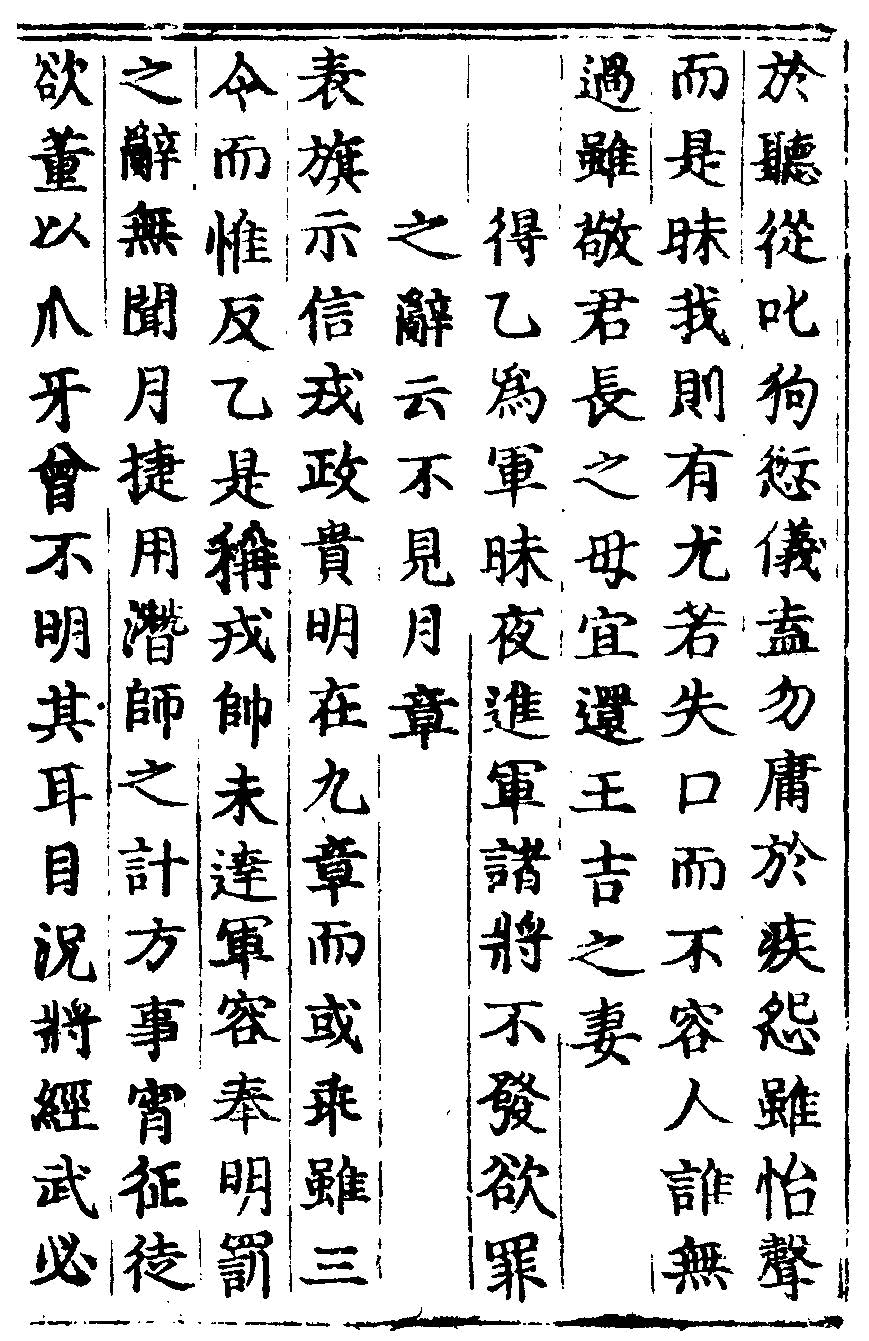 於聽從叱狗愆儀盍勿庸於疾怨雖怡聲
而是昧我則有尤若失口而不容人誰無
過雖敬君長之母宜還王吉之妻
得乙爲軍昧夜進軍諸將不發欲罪
之辭云不見月章
表旗示信戎政貴明在九章而或乖雖三
令而惟反乙是稱戎帥未達軍容奉明罰
之辭無聞月捷用潛師之計方事宵征徒
欲董以爪牙曾不明其耳目況將經武必